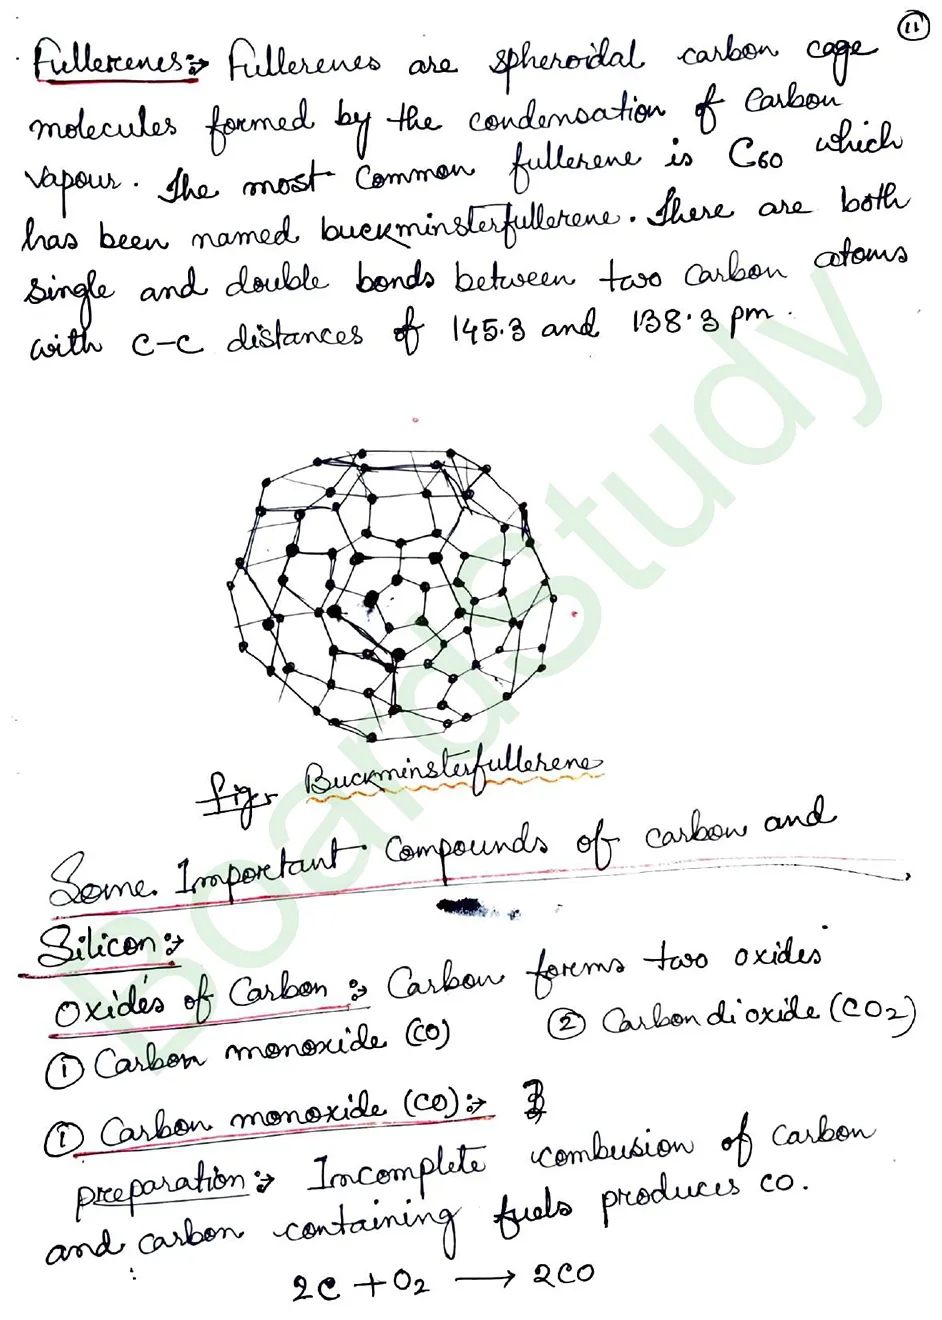 11
Fullerenes:→ Fullerenes are spheroidal carbon cage
molecules formed by the condensation of Carbon
vapour. The most common fullerene is C60 which
has been named buckminsterfullerene. There are both
single and double bonds between two carbon atoms
with C-C distances of 145.3 and 138.3 pm.
fig:- Buckminsterfullerene
Some Important Compounds of carbon and
Silicon:→
Oxides of Carbon:→ Carbon forms two oxides
① Carbon monoxide (CO) ② Carbondioxide (CO2)
① Carbon monoxide (CO):→
preparation:→ Incomplete combusion of carbon
and carbon containing fuels produces CO.
2C + O2 ⟶ 2CO
BoardStudy